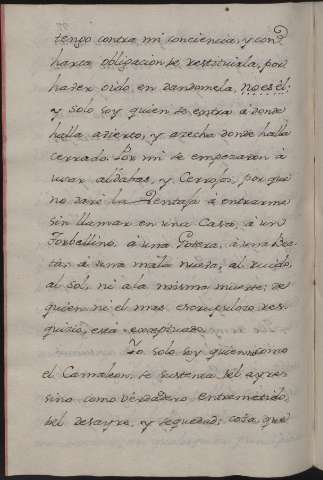 tengo contra mi conciencia, y con
harta obligacion de restituirla, por
haver oido en dandomela, no es él;
y solo soy quien se entra á donde
halla avierto, y azecha donde halla
cerrado. Por mi se empezaron á
usar aldabas, y Cerrojos, por que
no dare la Ventaja á entrarme
sin llamar en una Casa, á un
Torbellino, á una Gotera, á una Bea-
ta, á una mala nueva, al ruido,
al sol, ni a la misma muerte; de
quien ni el mas escrupuloso res-
quicio, está exceptuado.
Yo solo soy quien como
el Camaleon, se sustenta del ayre;
sino como verdadero entremetido,
del desayre, y sequedad; cosa que